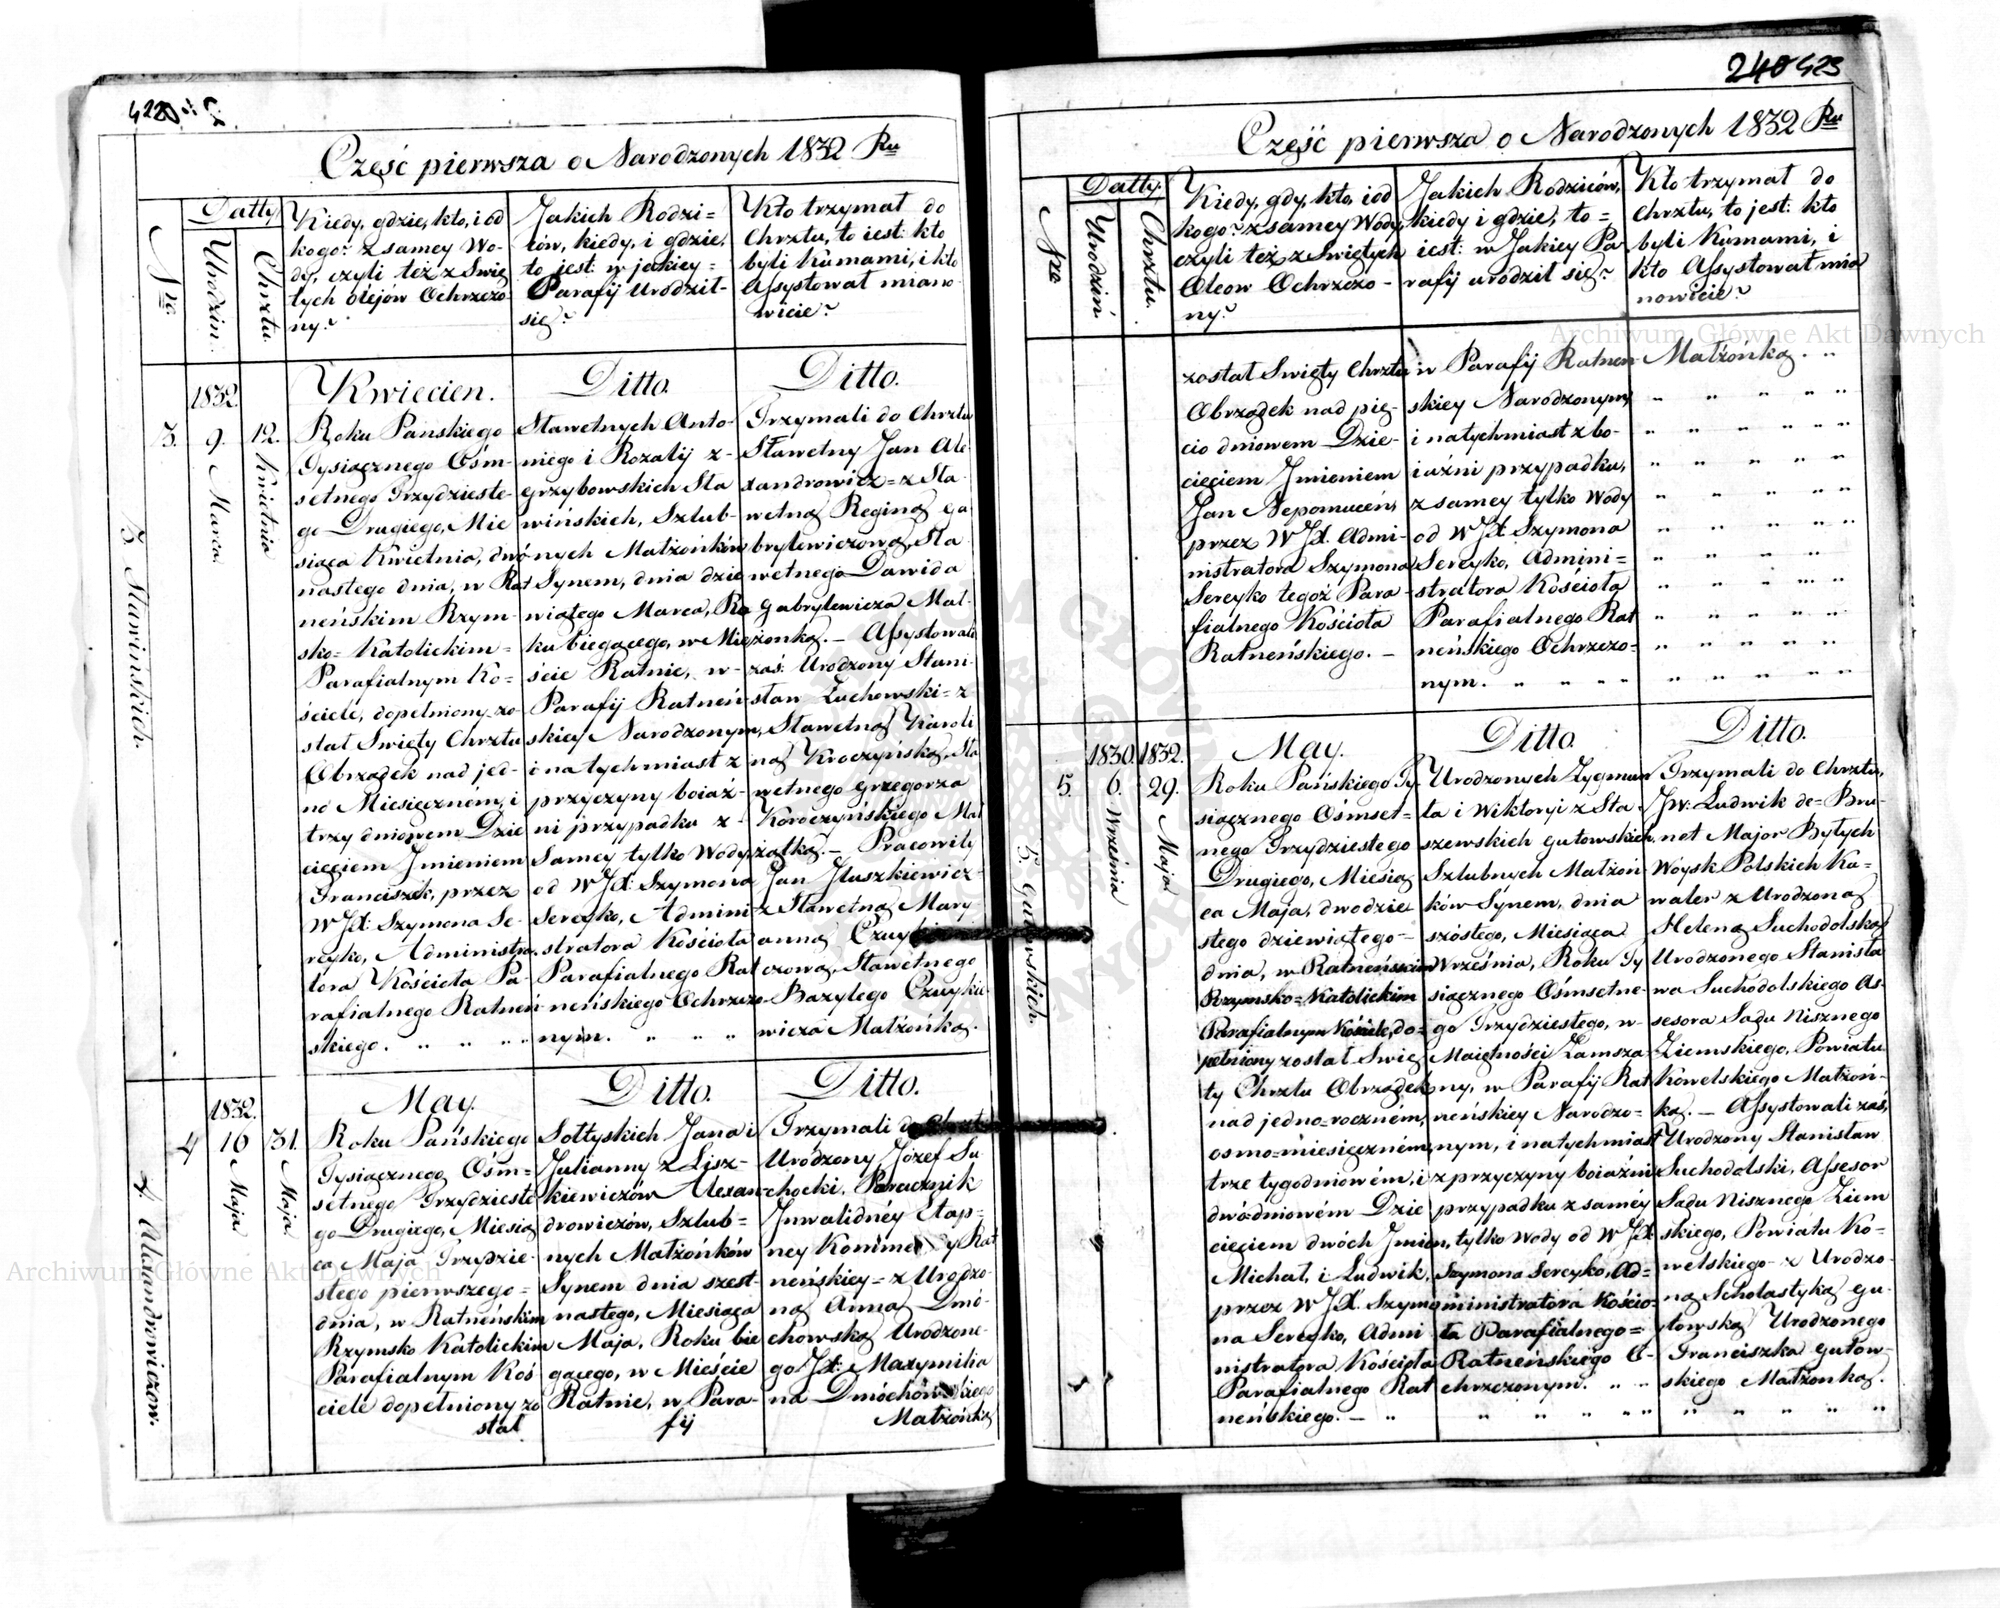 Część pierwsza o Narodzonych 1832 Ru
Nro.
Datty
Urodzin.
Chrztu.
Kiedy, gdzie, kto, i od
kogo? z samey Wo-
dy, czyli też z Swię
tych olejów Ochrzczo-
ny?
Jakich Rodzi=
ców, kiedy, i gdzie,
to jest: w jakiey=
Parafij Urodził-
się?
Kto trzymał do
Chrztu, to iest: kto
byli Kumami, i kto
Assystował miano-
wicie?
3. Stawińskich.
3.
1832.
9. Marca.
12. Kwietnia
Kwiecien.
Roku Panskiego
Tysiącznego Ośm-
setnego Trzydzieste-
go Drugiego, Mie
siąca Kwietnia, dwó
nastego dnia, w Rat
neńskim Rzym-
sko=Katolickim=
Parafialnym Ko=
ściele, dopełniony zo
stał Swięty Chrztu
Obrządek nad jed-
no Miesięczném, i
trzy dniowem Dzie
cięciem Jmieniem
Franciszek, przez
WJX: Szymona Se-
reyko, Administra-
tora Kościoła Pa-
rafialnego Ratneń
skiego.
Ditto.
Sławetnych Anto-
niego i Rozalij z-
Grzybowskich Sta
wińskich, Szlub-
nych Małżonków
Synem, dnia dzie
wiątego Marca, Ro
ku biegącego, w Mie
ście Ratnie, w-
Parafij Ratneń-
skiey Narodzonym,
i natychmiast z
przyczyny boiaź-
ni przypadku z-
Samey tylko Wody,
od WJX: Szymona
Sereyko, Admini-
stratora Kościoła
Parafialnego Rat
neńskiego Ochrzczo-
nym.
Ditto.
Trzymali do Chrztu
Sławetny Jan Ale-
xandrowicz=z Sła-
wetną Reginą Ga
brylewiczową, Sła-
wetnego Dawida
Gabrylewicza Mał-
żonką. — Assystowali
zaś: Urodzony Stani-
sław Żuchowski=z
Sławetną Karoli
ną Kroczyńską, Sła
wetnego Grzegorza
Koroczyńskiego Mał
żąłką. — Pracowity
Jan
z Sławetną Mary
anną
czową, Sławetnego
Bazylego Czuykie
wicza Małżonką.
4. Alexandrowiczow.
4
1832.
16 Maja
31. Maja
May.
Roku Pańskiego
Tysiącznego Ośm=
setnego Trzydzieste
go Drugiego, Miesią
ca Maja Trzydzie-
stego pierwszego=
dnia, w Ratneńskim
Rzymsko Katolickim
Parafialnym Koś
ciele dopełniony zo
stał
Ditto.
Sołtyskich Jana i
Julianny z Lisz-
kiewiczów Alexan-
drowiczów, Szlub=
nych Małżonków
Synem dnia szest-
nastego, Miesiąca
Maja, Roku bie
gącego, w Mieście
Ratnie, w Para-
fij
Ditto.
Trzymali do Chrztu
Urodzony Józef Su
chocki, Porucznik
Jnwalidnéy Etap=
ney Kommendy Rat
neńskiey=z Urodzo-
ną Anną Dmó-
chowską Urodzone-
go JX: Maxymilia
na Dmóchowskiego
Małżonką
240 423
Część pierwsza o Narodzonych 1832 Ru
Nro
Datty.
Urodzin
Chrztu.
Kiedy, gdy, kto, i od
kogo? z samey Wody,
czyli też z Swiętych
Oleow Ochrzczo-
ny?
Jakich Rodziców,
kiedy i gdzie, to=
iest: w Jakiey Pa
rafij urodził się?
Kto trzymał do
Chrztu, to jest: kto
byli Kumami, i
kto Assystował mia
nowicie?
został Swięty Chrztu
Obrządek nad pię-
cio dniowem Dzie-
cięciem Jmieniem
Jan Nepomuceń,
przez WJX. Admi-
nistratora Szymona
Sereyko tegoż Para-
fialnego Kościoła
Ratneńskiego. —
w Parafij Ratneń
skiey Narodzonym,
i natychmiast z bo-
iaźni przypadku,
z samey tylko Wody
od WJX. Szymona
Sereyko, Admini=
stratora Kościoła
Parafialnego Rat
neńskiego Ochrzczo=
nym.
Małżonką.
5. Gutowskich.
5.
1830.
6. Września
1832.
29. Maja
May.
Roku Pańskiego Ty-
siącznego Ośmset=
nego Trzydziestego
Drugiego, Miesią
ca Maja, dwodzie
stego dziewiątego-
dnia, w Ratneńskim
Rzymsko=Katolickim
Parafialnym Kościele, do=
pełniony został Swię
ty Chrztu Obrządek
nad jedno=rocznem,
osmo=miesięczném,
trze tygodniowém, i
dwódniowém Dzie
cięciem dwóch Jmion,
Michał, i Ludwik,
przez WJX. Szymo
na Sereyko, Admi
nistratora Kościoła
Parafialnego Rat
neńskiego. —
Ditto.
Urodzonych Zygmun
ta i Wiktoryi z Sta-
szewskich Gutowskich,
Szlubnych Małżon-
ków Synem, dnia
szóstego, Miesiąca
Września, Roku Ty
siącznego Ośmsetne-
go Trzydziestego, w-
Maiętności Zamsza
ny, w Parafij Rat
neńskiey Narodzo-
nym, i natychmiast
z przyczyny boiaźni
przypadku z saméy
tylko Wody od WJX
Szymona Sereyko, Ad=
ministratora Kościo-
ła Parafialnego=
Ratneńskiego O-
chrzczonym.
Ditto.
Trzymali do Chrztu,
JW. Ludwik de=Bru-
net Major Byłych
Woysk Polskich Ka=
waler z Urodzoną
Heleną Suchodolską
Urodzonego Stanisła
wa Suchodolskiego As-
sesora Sądu Niznego
Ziemskiego, Powiatu
Kowelskiego Małżon-
ką. — Assystowali zaś,
Urodzony Stanisław
Suchodolski, Assesor
Sądu Niznego Ziem
skiego, Powiatu Ko=
welskiego-z Urodzo-
ną Scholastyką Gu-
towską Urodzonego
Franciszka Gutow-
skiego Małżonką.
Archiwum Główne Akt Dawnych
Archiwum Główne Akt Dawnych